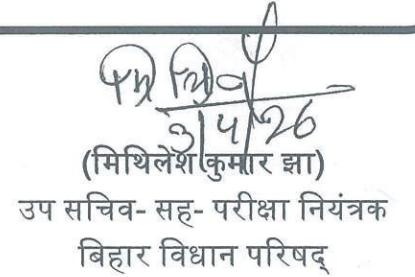 3/4/26
(मिथिलेश कुमार झा)
उप सचिव- सह- परीक्षा नियंत्रक
बिहार विधान परिषद्